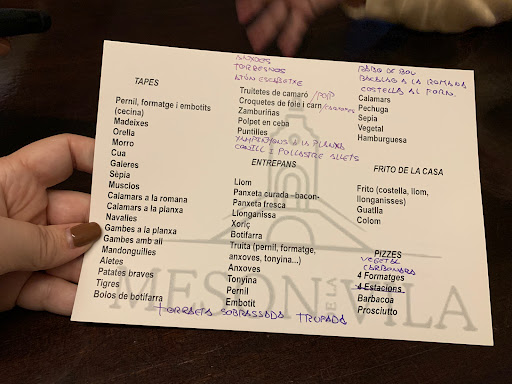 TAPES
Pernil, formatge i embotits
(cecina)
Madeixes
Orella
Morro
Cua
Galeres
Sèpia
Muscios
Calamars a la romana
Calamars a la planxa
Navalles
Gambes a la planxa
Gambes amb all
Mandonguilles
Aletes
Patates braves
Tigres
Bolos de botifarra
TORRESNOS
ATÚN ESCABETXE
Truitetes de camaró /POP
Croquetes de foie i carn
Zamburiñas
Polpet en ceba
Puntilles
XAMPINYONS A LA PLANXA
CONILL I POLLASTRE ALLETS
ENTREPANS
Llom
Panxeta curada -bacon-
Panxeta fresca
Llonganissa
Xoriç
Botifarra
Truita (pernil, formatge,
anxoves, tonyina...)
Anxoves
Tonyina
Pernil
Embotit
RABO DE BOU
BACALAO A LA ROMANA
COSTELLA AL FORN.
Calamars
Pechuga
Sepia
Vegetal
Hamburguesa
FRITO DE LA CASA
Frito (costella, llom,
llonganisses)
Guatlla
Colom
PIZZES
VEGETAL
CARBONARA
4 Formatges
4 Estacions
Barbacoa
Prosciutto
MESON VILA
TORRAETA SOBRASSADA TRUFADA